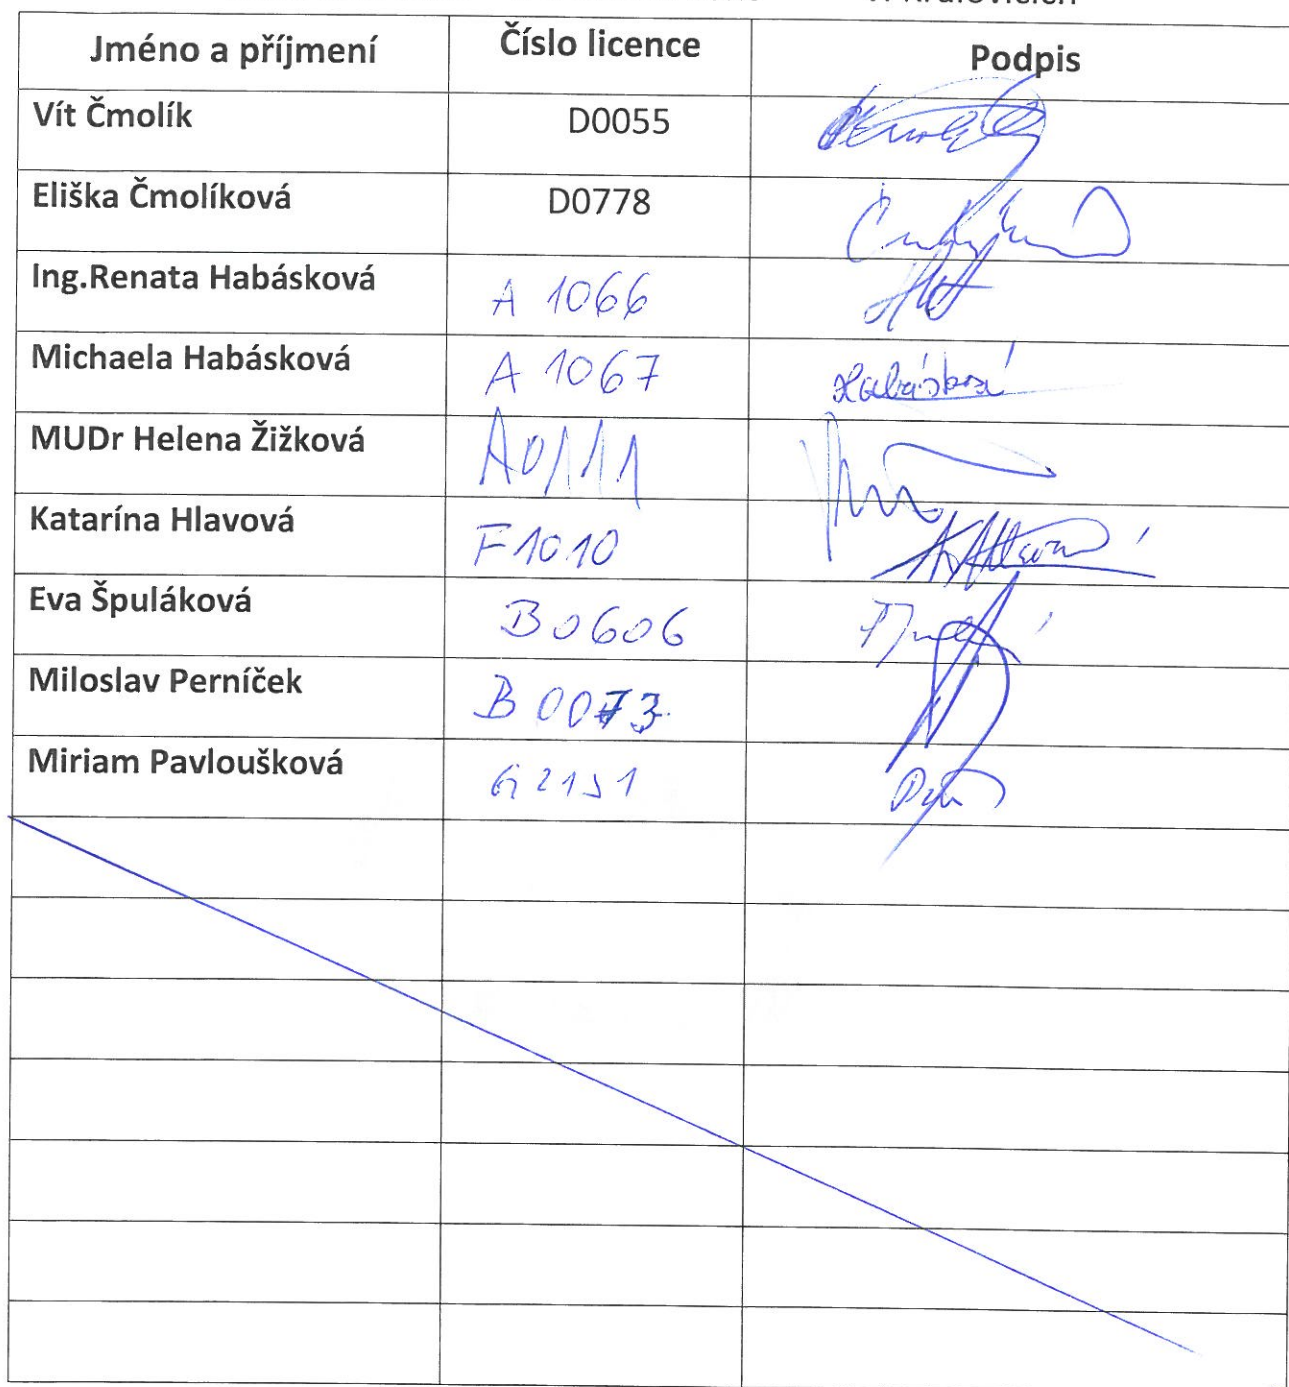 Královicích
Jméno a příjmení Číslo licence Podpis
Vít Čmolík D0055
Eliška Čmolíková D0778
Ing.Renata Habásková A 1066
Michaela Habásková A 1067 Habásková
MUDr Helena Žižková A0111
Katarína Hlavová F1010
Eva Špuláková B0606
Miloslav Perníček B 0073
Miriam Pavloušková